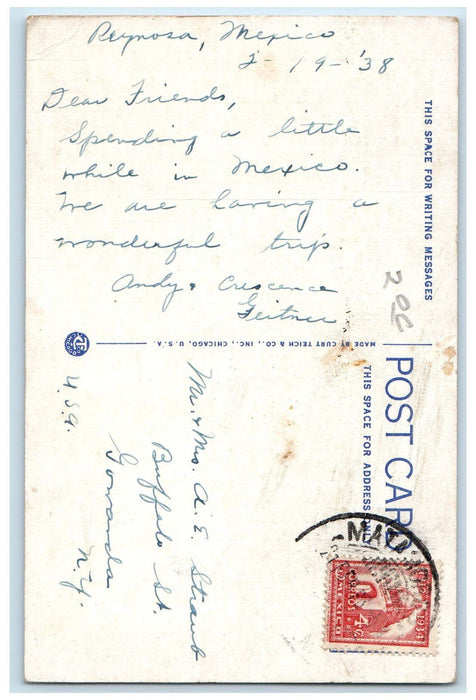 Reynosa, Mexico
2-19-'38
Dear Friends,
Spending a little
while in Mexico.
We are having a
wonderful trip.
Andy & Crescence
Geitner
THIS SPACE FOR WRITING MESSAGES
206
MADE BY CURT TEICH & CO., INC., CHICAGO, U.S.A.
POST CARD
THIS SPACE FOR ADDRESS ONLY
Mr. & Mrs. A. E. Straub
Buffalo St.
Gowanda
N.Y.
U.S.A.
MATA
CORREOS
MEXICO
4¢
1934